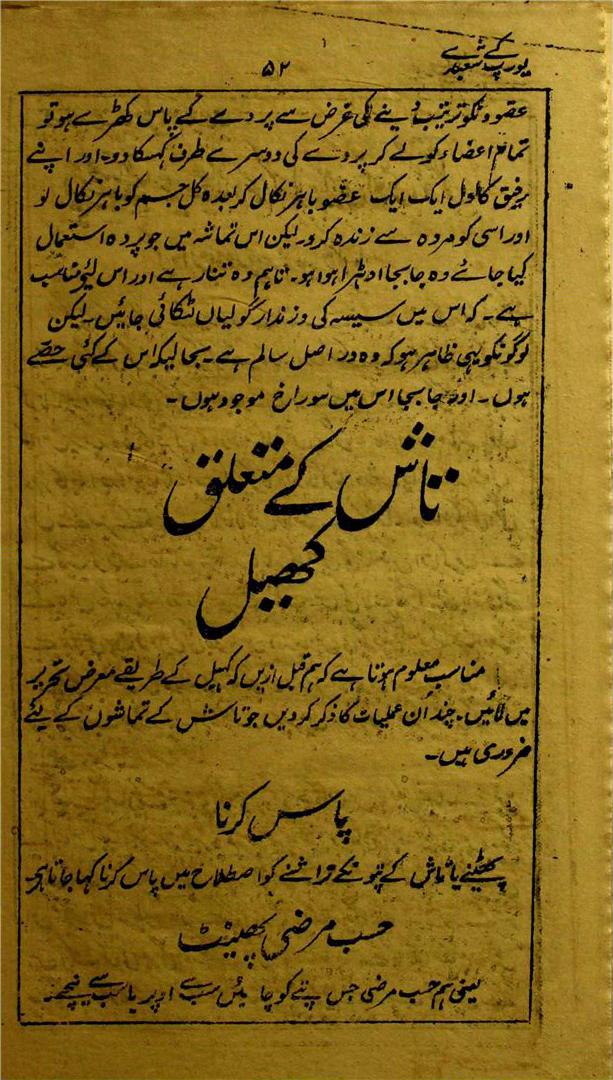 یورپ کے شعبدے
۵۲
عضوونکو ترتیب دینے کی غرض سے پردے کے پاس کھڑے ہو تو
تمام اعضاء کو لے کر پردے کی دوسرے طرف کھسکا دو۔ اور اپنے
رفیق کا اول ایک ایک عضو باہر نکال کر بعدہ کل جسم کو باہر نکال لو
اور اسی کو مردہ سے زندہ کرو۔ لیکن اس تماشہ میں جو پردہ استعمال
کیا جائے وہ جابجا ادھڑا ہوا ہو۔ تاہم وہ تنار ہے اور اس لئے مناسب
ہے۔ کہ اس میں سیسہ کی وزندار گولیاں لٹکائی جائیں۔ لیکن
لوگونکو یہی ظاہر ہو کہ وہ دراصل سالم ہے۔ بحالیکہ اس کے کئی حصے
ہوں۔ اور جابجا اس میں سوراخ موجود ہوں۔
تاش کے متعلق
کھیل
مناسب معلوم ہوتا ہے کہ ہم قبل ازیں کہ کہیل کے طریقے معرض تحریر
میں لائیں۔ چند اُن عملیات کا ذکر کر دیں جو تاش کے تماشوں کے لیئے
ضروری ہیں۔
پاس کرنا
پھینٹنے یا تاش کے پتونکے تراشنے کو اصطلاح میں پاس کرنا کہا جاتا ہے۔
حسب مرضی پھینٹ
یعنی ہم حسب مرضی جس پتے کو چاہیں سب سے اوپر یا سب سے نیچے۔